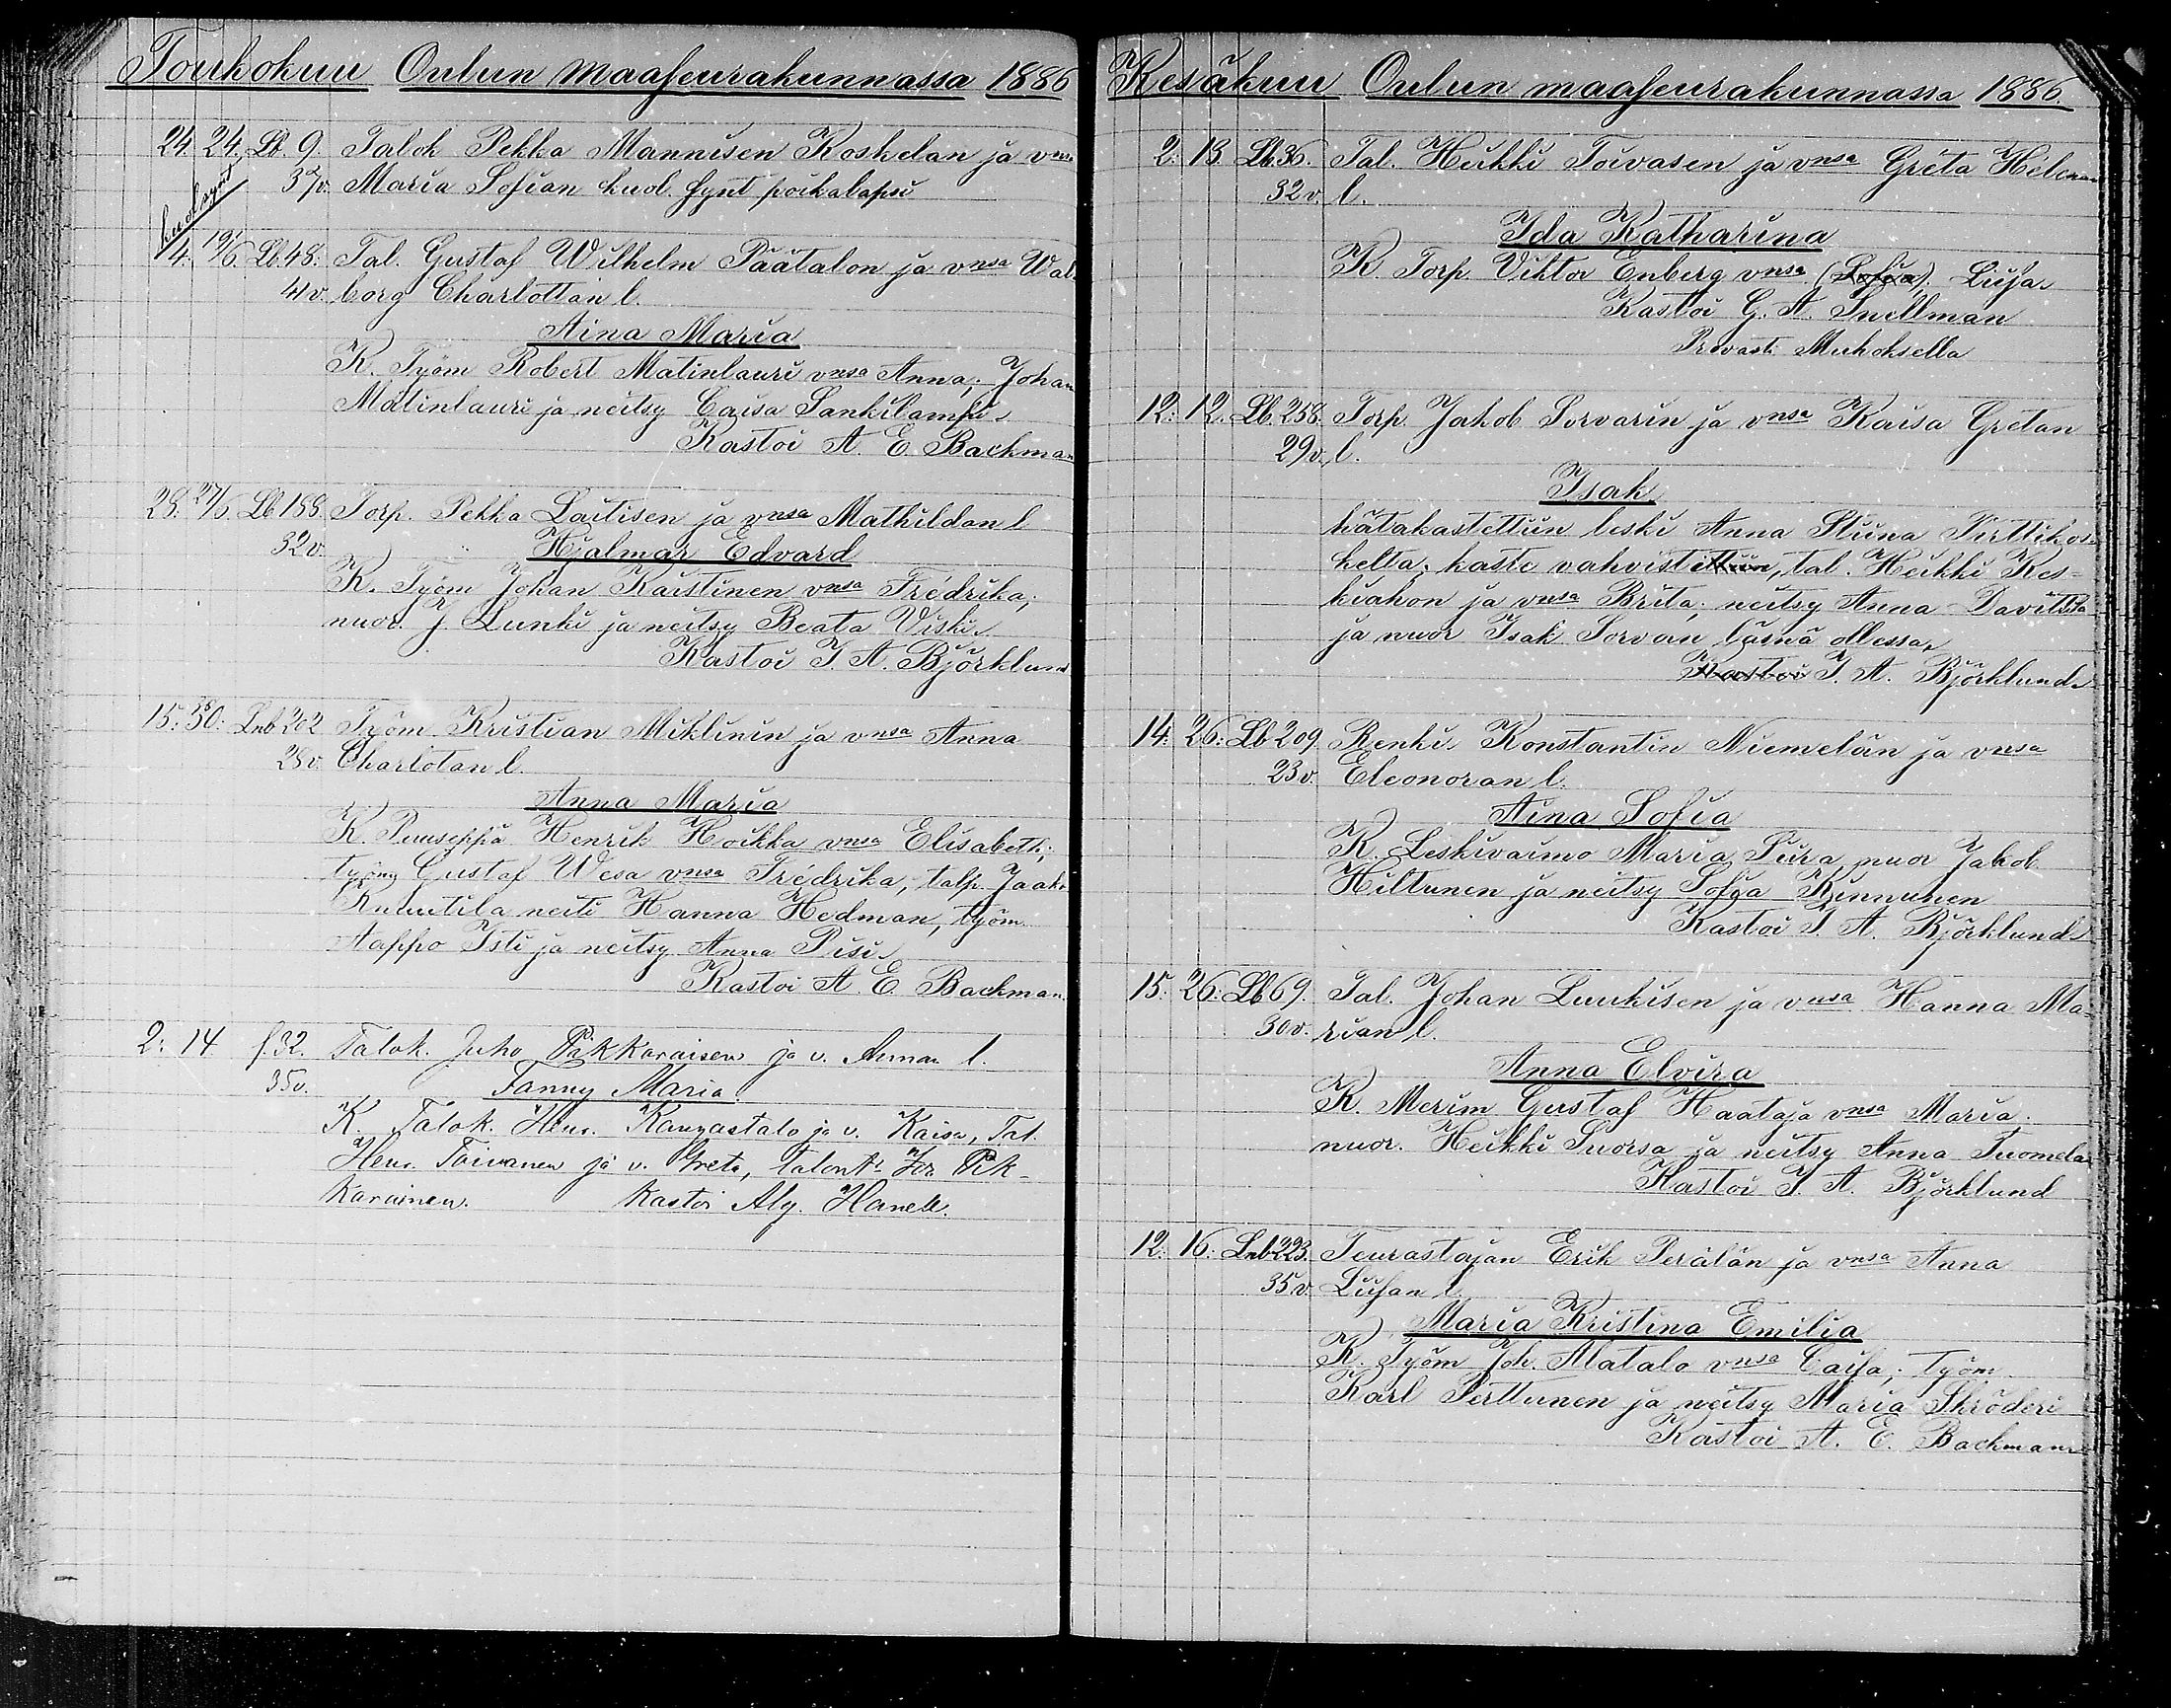 Toukokuu Oulun maaseurakunnassa 1886
24. 24. Lb. 9. Talok Pekka Mannisen Koskelan ja vmsa
kuolsynt
37v. Maria Sofian kuol. synt poikalapsi
4. 19/6 Lb.48. Tal. Gustaf Wilhelm Päätalon ja vmsa Wal-
41v. borg Charlottan l.
Aina Maria
K. Työm Robert Matinlauri vmsa Anna; Johan
Matinlauri ja neitsy Caisa Sankilampi.
Kastoi A. E. Backman
28. 27/6. Lb 188. Torp. Pekka Laitisen ja vmsa Mathildan l
32v. Hjalmar Edvard
K. Työm Johan Kaistinen vmsa Fredrika;
nuor. J. Lunki ja neitsy Beata Viski.
Kastoi I. A. Björklund
15. 30. Lnb 202 Työm. Kristian Miklinin ja vmsa Anna
28v. Charlotan l.
Anna Maria
K. Puuseppä Henrik Hoikka vmsa Elisabeth;
työm Gustaf Wesa vmsa Fredrika, talp. Jaak.
neiti Hanna Hedman, työm.
Aappo Isti ja neitsy Anna Piisi.
Kastoi A. E. Backman.
2. 14 f.32. Talok. Juho Pikkaraisen ja v. Annan l.
35v. Fanny Maria.
K. Talok. Henr. Kangastalo ja v. Kaisa, Tal.
Henr. Toivanen ja v. Greta, talont. Pik-
karainen. Kastoi Alg. Hanell.
Kesäkuu Oulun maaseurakunnassa 1886.
2. 13. Lb.36. Tal. Heikki Toivasen ja vmsa Greta Helenan
32v. l.
Ida Katharina
K. Torp. Viktor Enberg vmsa (Sofia). Liisa.
Kastoi G. A. Snellman
Provasti Muhoksella
12. 12. Lb. 258. Torp. Jakob Sorvarin ja vmsa Kaisa Gretan
29v. l.
Isak.
hätäkastettiin leski Anna Stiina Pirttikos-
kelta; kaste vahvistettiin, tal. Heikki Kes-
kiahon ja vmsa Brita; neitsy Anna Davitsta
ja nuor Isak Sorvan läsnä ollessa.
Kastoi I. A. Björklund.
14. 26. Lb 209. Renki. Konstantin Niemelän ja vmsa
23v. Eleonoran l.
Aina Sofia
K. Leskivaimo Maria Piira nuor Jakob
Hiltunen ja neitsy Sofia Kinnunen
Kastoi I. A. Björklund.
15. 26. Lb 69. Tal. Johan Luukisen ja vmsa Hanna Ma-
30v. rian l.
Anna Elvira
K. Merim Gustaf Haataja vmsa Maria.
nuor. Heikki Suorsa ja neitsy Anna Tuomela
Kastoi I. A. Björklund
12. 16. Lnb 223. Teurastajan Erik Perälän ja vmsa Anna
35v. Liisan l.
Maria Kristina Emilia
K. Työm Joh. Alatalo vmsa Caisa; Työm.
Karl Perttunen ja neitsy Maria Skröderi
Kastoi A. E. Backman.